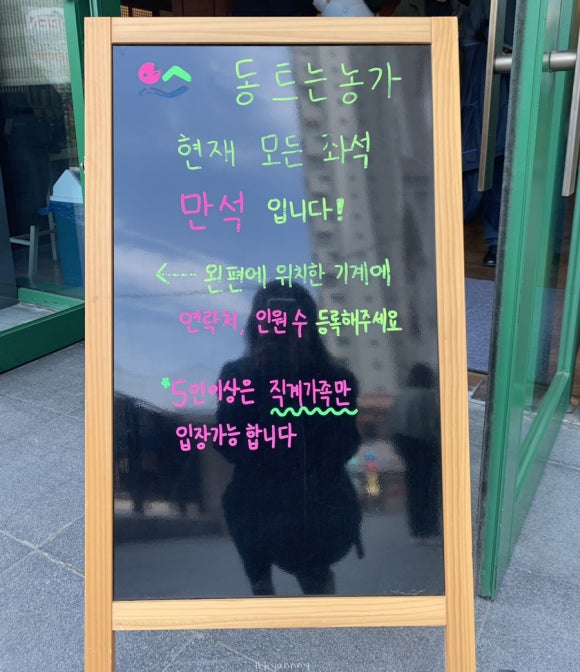 동트는농가
현재 모든 좌석
만석 입니다!
<---- 왼편에 위치한 기계에
연락처, 인원수 등록해주세요
*5인이상은 직계가족만
입장가능합니다